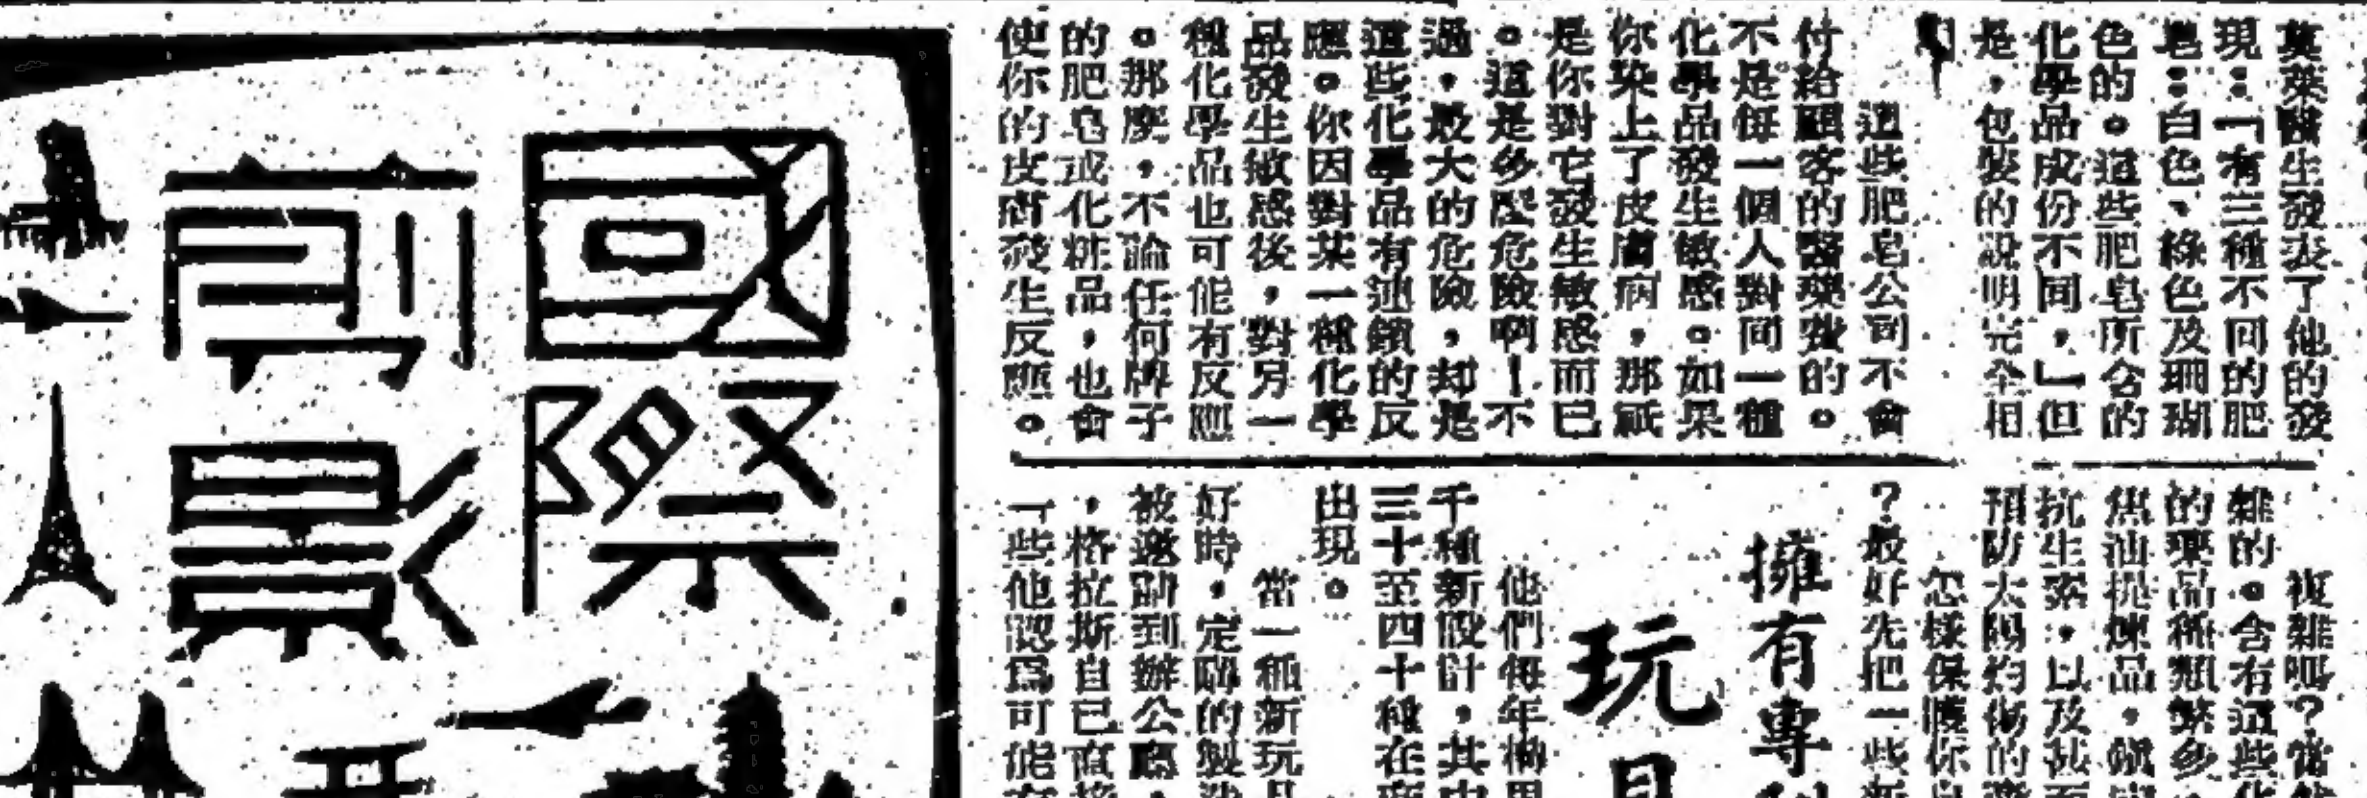 莫萊醫生發表了他的發
現：「有三種不同的肥
皂：白色、綠色及珊瑚
色的。這些肥皂所含的
化學品成份不同，」但
是，包裝的說明完全相
這些肥皂公司不會
付給顧客的醫藥費的。
不是每一個人對同一種
化學品發生敏感。如果
你染上了皮膚病，那祇
是你對它發生敏感而已
。這是多麼危險啊！不
過，最大的危險，却是
這些化學品有連鎖的反
應。你因對某一種化學
品發生敏感後，對另一
種化學品也可能有反應
。那麼，不論任何牌子
的肥皂或化粧品，也會
使你的皮膚發生反應。
國際
剪影
複雜呢？當
雜的。含有這些化
的藥品種類繁多，
焦油提煉品，
抗生素，以及甚至
預防太陽灼傷的
怎樣保護你
？最好先把一些新
擁有專利
玩具
他們每年
千種新設計，其中
三十至四十種在
出現。
當一種新玩具
好時，定購的製
被邀請到辦公廳，
，格拉斯自已直接
一些他認爲可能